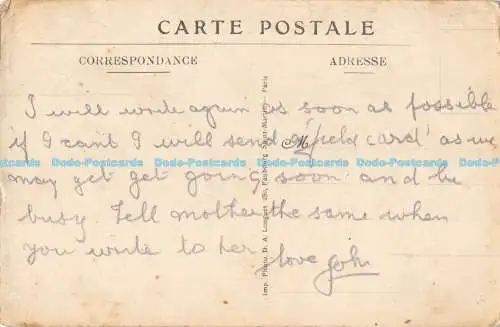 CARTE POSTALE
CORRESPONDANCE
ADRESSE
I will write again as soon as possible
if I cant I will send a 'field card' as we
M
may get get going soon and be
busy. Tell mother the same when
you write to her love John
Imp. Photo. D. A. Longuet, 250, Faubourg Saint-Martin, Paris
Dodo-Postcards Dodo-Postcards Dodo-Postcards Dodo-Postcards Dodo-Postcards
Dodo-Postcards Dodo-Postcards Dodo-Postcards Dodo-Postcards Dodo-Postcards